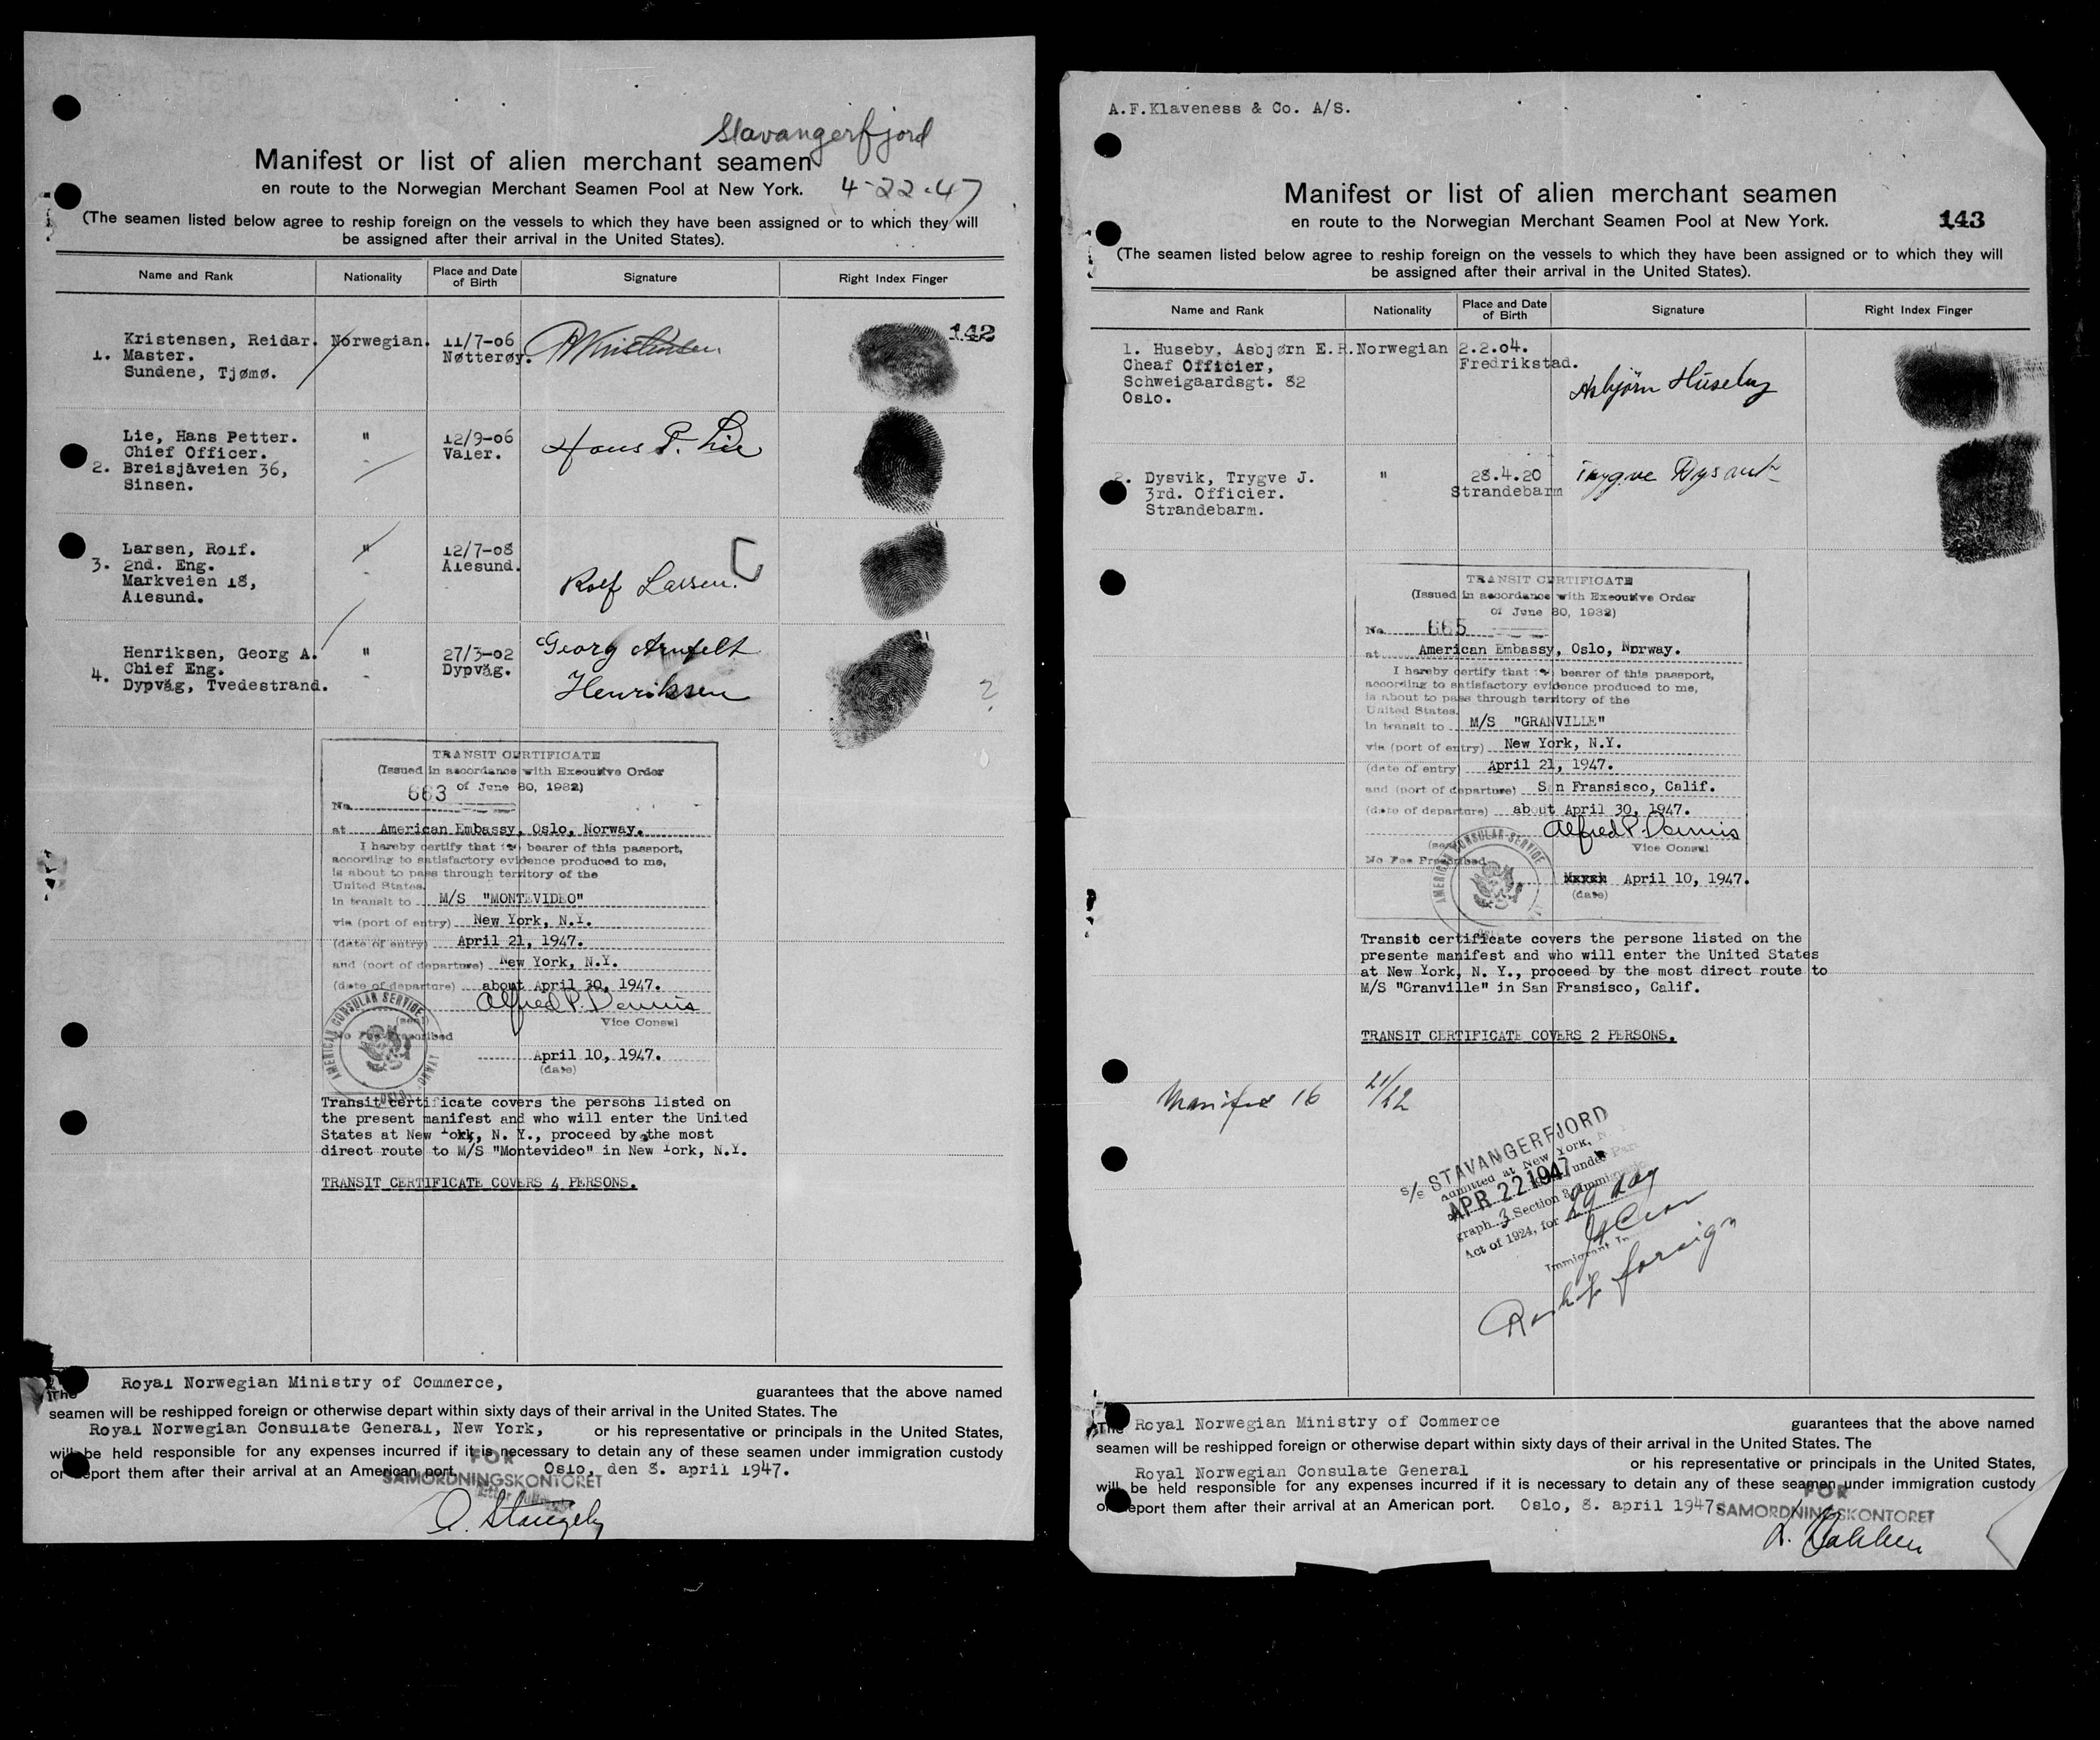 Stavangerfjord
Manifest or list of alien merchant seamen
en route to the Norwegian Merchant Seamen Pool at New York. 4-22-47
(The seamen listed below agree to reship foreign on the vessels to which they have been assigned or to which they will
be assigned after their arrival in the United States).
Name and Rank Nationality Place and Date of Birth Signature Right Index Finger
142
Kristensen, Reidar. Norwegian. 11/7-06
1. Master. Nøtterøy. R Kristensen
Sundene, Tjømø.
Lie, Hans Petter. " 12/9-06
Chief Officer. Valer. Hans P. Lie
2. Breisjåveien 36,
Sinsen.
Larsen, Rolf. " 12/7-08
3. 2nd. Eng. Alesund.
Markveien 18, Rolf Larsen.
Alesund.
Henriksen, Georg A. " 27/3-02 Georg Arnfelt
4. Chief Eng. Dypvåg. Henriksen
Dypvåg, Tvedestrand.
?
TRANSIT CERTIFICATE
(Issued in accordance with Executive Order
of June 30, 1932)
No. 663
at American Embassy, Oslo, Norway.
I hereby certify that the bearer of this passport,
according to satisfactory evidence produced to me,
is about to pass through territory of the
United States.
in transit to M/S "MONTEVIDEO"
via (port of entry) New York, N.Y.
(date of entry) April 21, 1947.
and (port of departure) New York, N.Y.
(date of departure) about April 30, 1947.
Alfred P. Dennis
(seal) Vice Consul
No Fee Prescribed
April 10, 1947.
(date)
AMERICAN CONSULAR SERVICE
OSLO NORWAY
Transit certificate covers the persons listed on
the present manifest and who will enter the United
States at New York, N. Y., proceed by the most
direct route to M/S "Montevideo" in New York, N.Y.
TRANSIT CERTIFICATE COVERS 4 PERSONS.
The Royal Norwegian Ministry of Commerce, guarantees that the above named
seamen will be reshipped foreign or otherwise depart within sixty days of their arrival in the United States. The
Royal Norwegian Consulate General, New York, or his representative or principals in the United States,
will be held responsible for any expenses incurred if it is necessary to detain any of these seamen under immigration custody
or deport them after their arrival at an American port. Oslo, den 8. april 1947.
FOR
SAMORDNINGSKONTORET
A.F.Klaveness & Co. A/S.
Manifest or list of alien merchant seamen
en route to the Norwegian Merchant Seamen Pool at New York. 143
(The seamen listed below agree to reship foreign on the vessels to which they have been assigned or to which they will
be assigned after their arrival in the United States).
Name and Rank Nationality Place and Date of Birth Signature Right Index Finger
1. Huseby, Asbjørn E.R. Norwegian 2.2.04.
Cheaf Officier, Fredrikstad.
Schweigaardsgt. 82 Asbjörn Huseby
Oslo.
2. Dysvik, Trygve J. " 28.4.20 Trygve Dysvik
3rd. Officier. Strandebarm
Strandebarm.
TRANSIT CERTIFICATE
(Issued in accordance with Executive Order
of June 30, 1932)
No. 665
at American Embassy, Oslo, Norway.
I hereby certify that the bearer of this passport,
according to satisfactory evidence produced to me,
is about to pass through territory of the
United States.
in transit to M/S "GRANVILLE"
via (port of entry) New York, N.Y.
(date of entry) April 21, 1947.
and (port of departure) San Fransisco, Calif.
(date of departure) about April 30, 1947.
Alfred P. Dennis
(seal) Vice Consul
No Fee Prescribed
April 10, 1947.
(date)
AMERICAN CONSULAR SERVICE
Transit certificate covers the persone listed on the
presente manifest and who will enter the United States
at New York, N. Y., proceed by the most direct route to
M/S "Granville" in San Fransisco, Calif.
TRANSIT CERTIFICATE COVERS 2 PERSONS.
Manifest 16 21/22
S/S STAVANGERFJORD
admitted at New York, N.
APR 22 1947 under Para
graph 3 Section 3 Immigration
Act of 1924, for 29 day
Immigrant In
Reship foreign
The Royal Norwegian Ministry of Commerce guarantees that the above named
seamen will be reshipped foreign or otherwise depart within sixty days of their arrival in the United States. The
Royal Norwegian Consulate General or his representative or principals in the United States,
will be held responsible for any expenses incurred if it is necessary to detain any of these seamen under immigration custody
or deport them after their arrival at an American port. Oslo, 8. april 1947.
FOR
SAMORDNINGSKONTORET